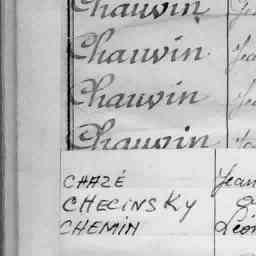 Chauvin
Chauvin
Chauvin
Chauvin
CHAZÉ Jean
CHECINSKY
CHEMIN Léon